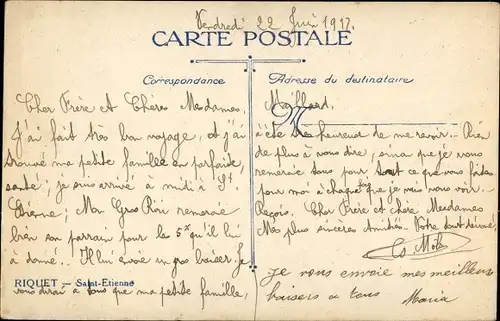 Vendredi 22 Juin 1917.
CARTE POSTALE
Correspondance
Cher Frère et Chères Mesdames
J'ai fait très bon voyage, et j'ai
trouvé ma petite famille en parfaite
santé; je suis arrivé à midi à St
Etienne; Mon Gros Riri remercie
bien son parrain pour les 5 qu'il lui
à donné. Il lui envoie un gros baiser. Je
RIQUET — Saint-Etienne
vous dirai à tous que ma petite famille,
Adresse du destinataire
M
Maillard.
a été très heureuse de me revoir. Rien
de plus à vous dire, sinon que je vous
remercie tous pour tout ce que vous faites
pour moi à chaque fois que je vais vous voir.
Reçois, Cher Frère et chère Mesdames
Mes plus sincères Amitiés. Votre tout dévoué,
je vous envoie mes meilleurs
baisers a tous Maria